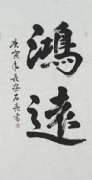 鴻遠
庚寅年長安石長書